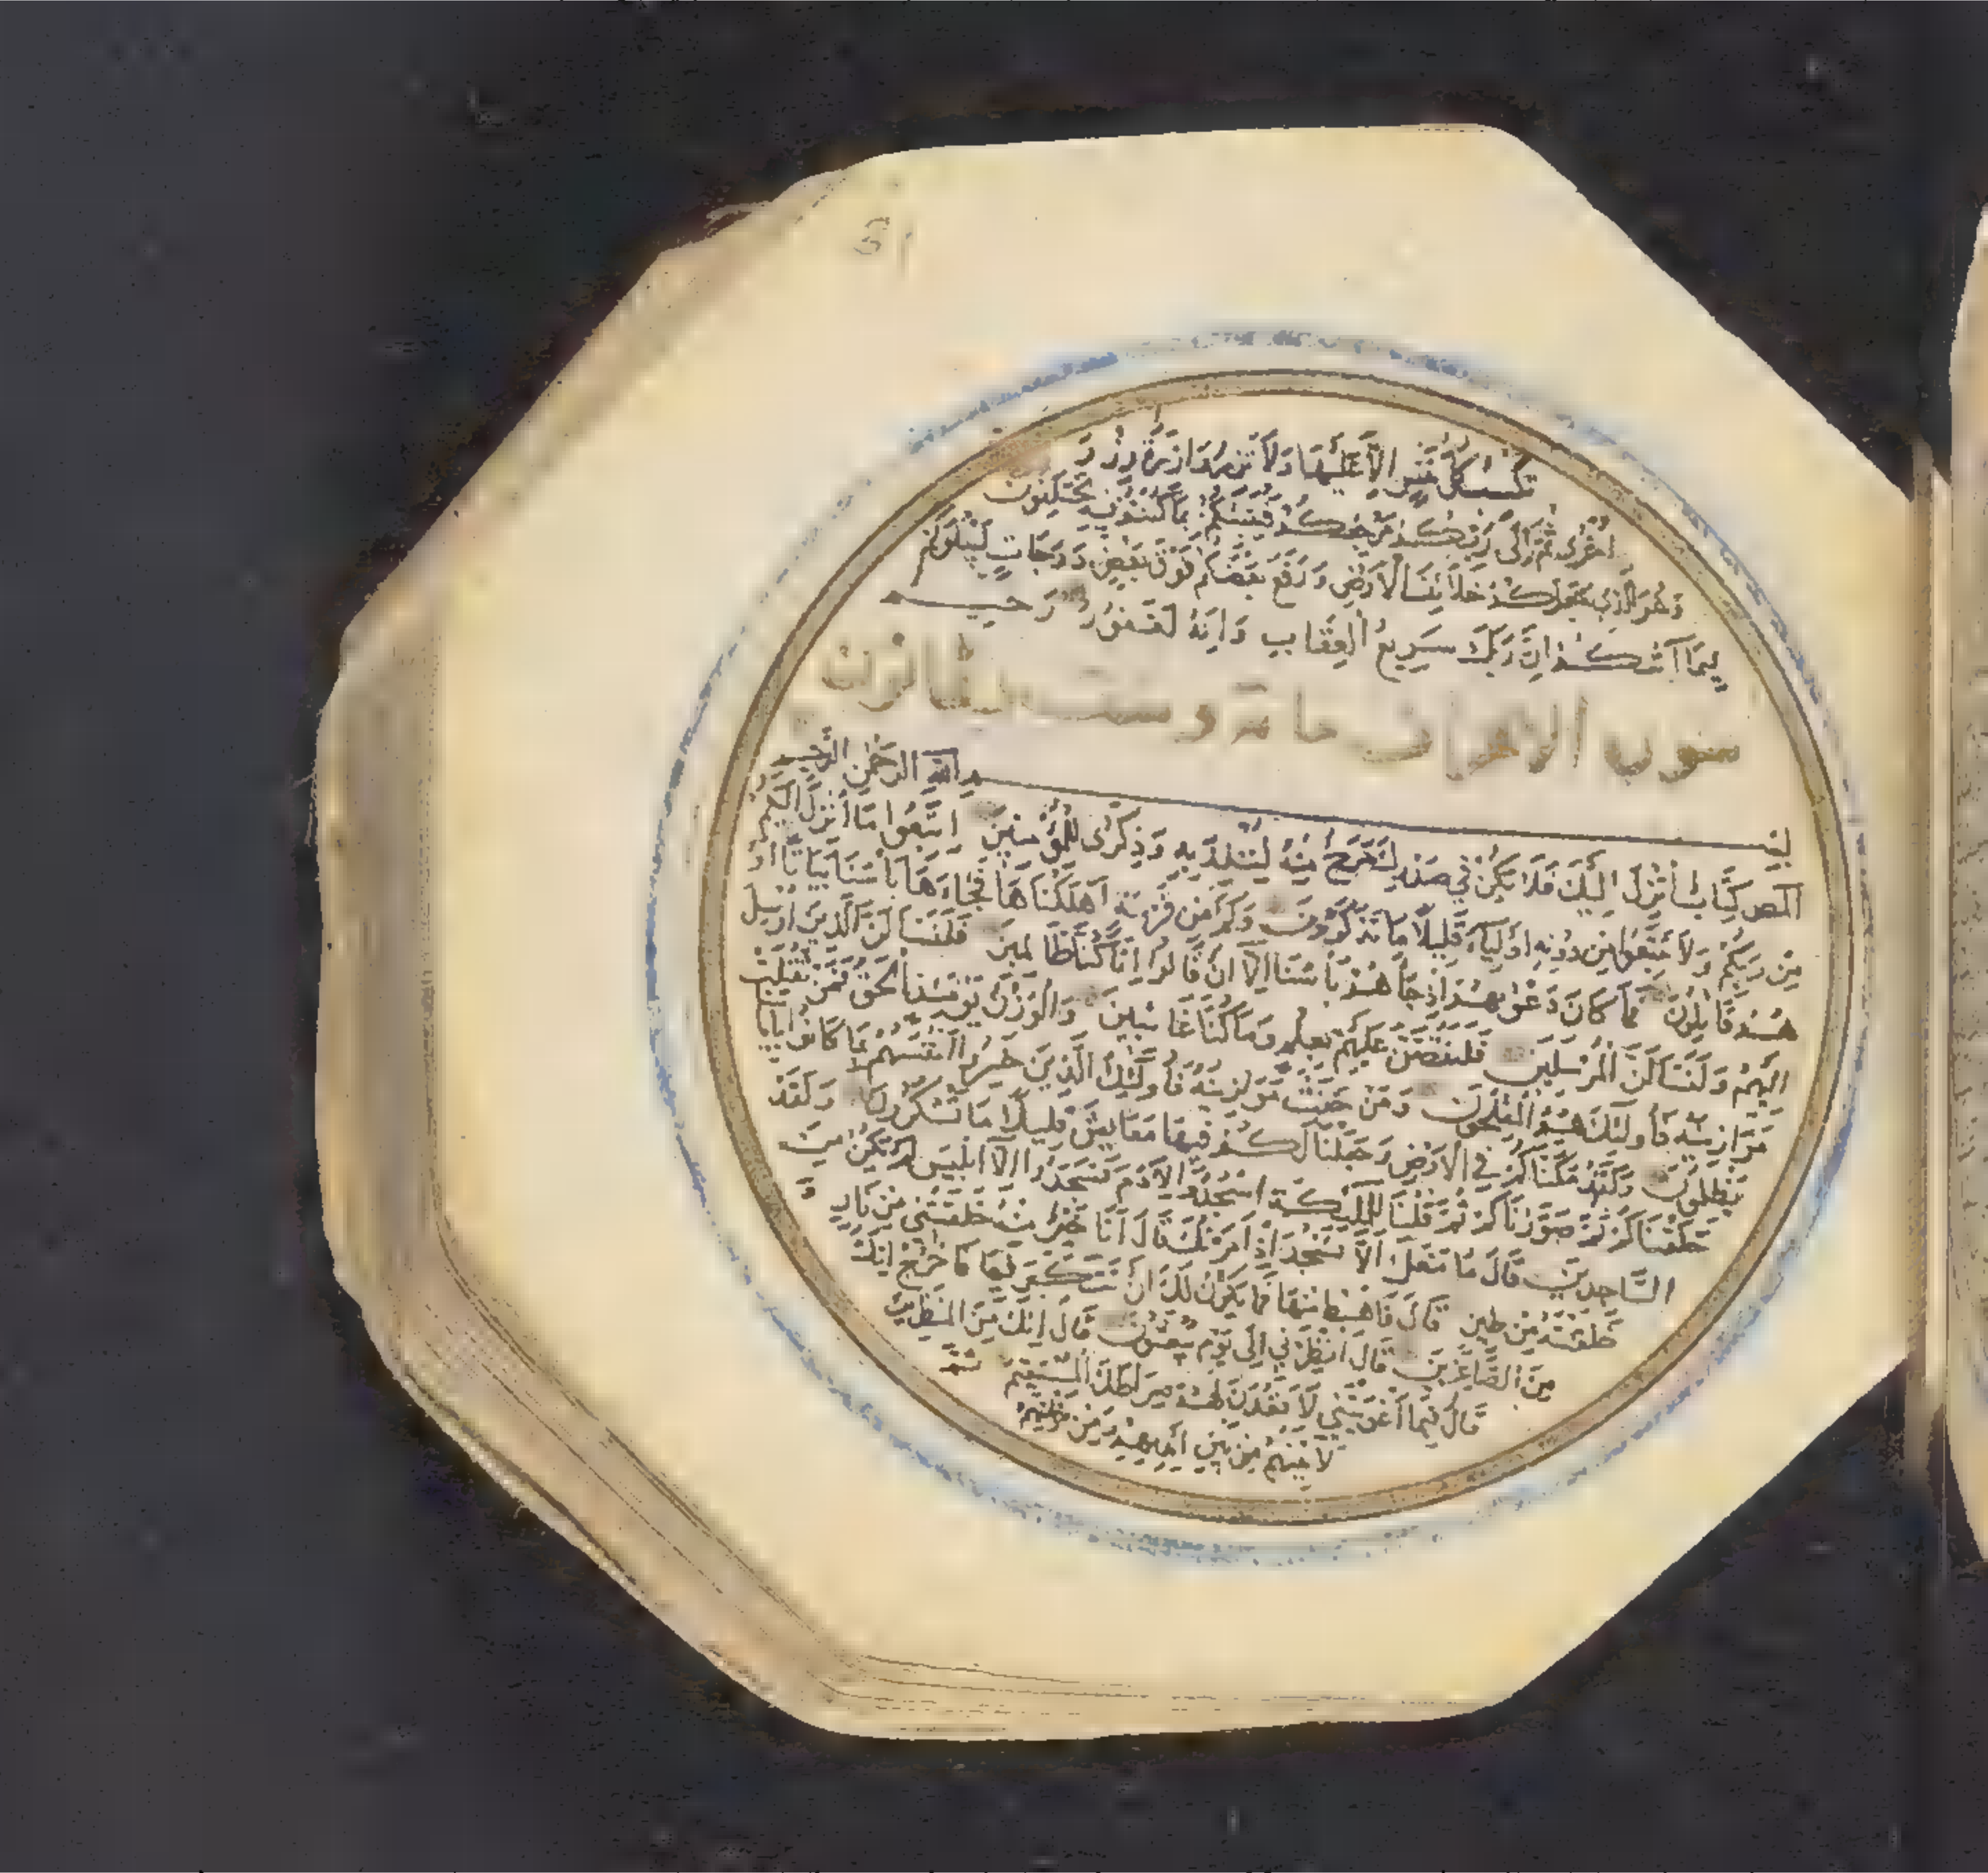 تكسب كل نفس الا عليها ولا تزر وازرة وزر
اخرى ثم الى ربكم مرجعكم فينبئكم بما كنتم فيه تختلفون
وهو الذي جعلكم خلائف الارض ورفع بعضكم فوق بعض درجات ليبلوكم
فيما آتيكم ان ربك سريع العقاب وانه لغفور رحيم
سورة الاعراف مائة وست
بسم الله الرحمن الرحيم
المص كتاب انزل اليك فلا يكن في صدرك حرج منه لتنذر به وذكرى للمؤمنين اتبعوا ما انزل اليكم
من ربكم ولا تتبعوا من دونه اولياء قليلا ما تذكرون وكم من قرية اهلكناها فجاءها بأسنا بياتا او
هم قائلون فما كان دعويهم اذ جاءهم بأسنا الا ان قالوا انا كنا ظالمين فلنسألن الذين ارسل
اليهم ولنسألن المرسلين فلنقصن عليهم بعلم وما كنا غائبين والوزن يومئذ الحق فمن ثقلت
موازينه فأولئك هم المفلحون ومن خفت موازينه فأولئك الذين خسروا انفسهم بما كانوا بآياتنا
يظلمون ولقد مكناكم في الارض وجعلنا لكم فيها معايش قليلا ما تشكرون ولقد
خلقناكم ثم صورناكم ثم قلنا للملئكة اسجدوا لآدم فسجدوا الا ابليس لم يكن من
الساجدين قال ما منعك الا تسجد اذ امرتك قال انا خير منه خلقتني من نار و
خلقته من طين قال فاهبط منها فما يكون لك ان تتكبر فيها فاخرج انك
من الصاغرين قال انظرني الى يوم يبعثون قال انك من المنظرين
قال فبما اغويتني لأقعدن لهم صراطك المستقيم ثم
لآتينهم من بين ايديهم ومن خلفهم